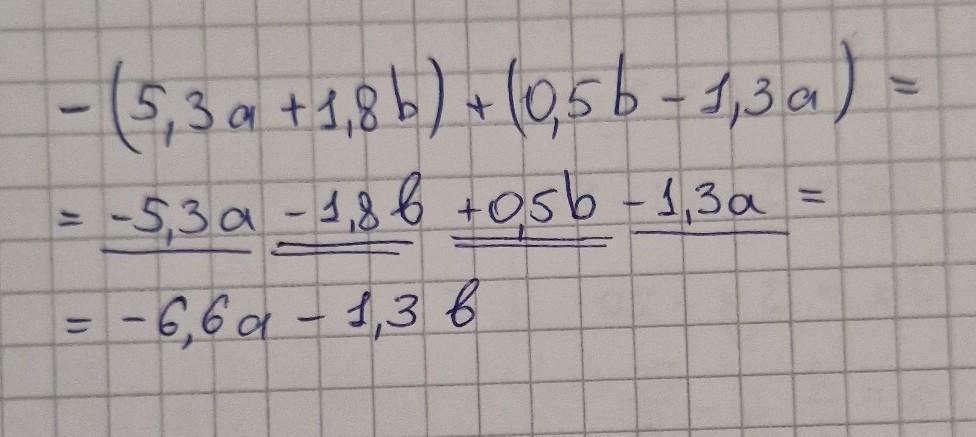 -(5,3a+1,8b)+(0,5b-1,3a)=
= -5,3a -1,8b +0,5b -1,3a =
= -6,6a - 1,3 b